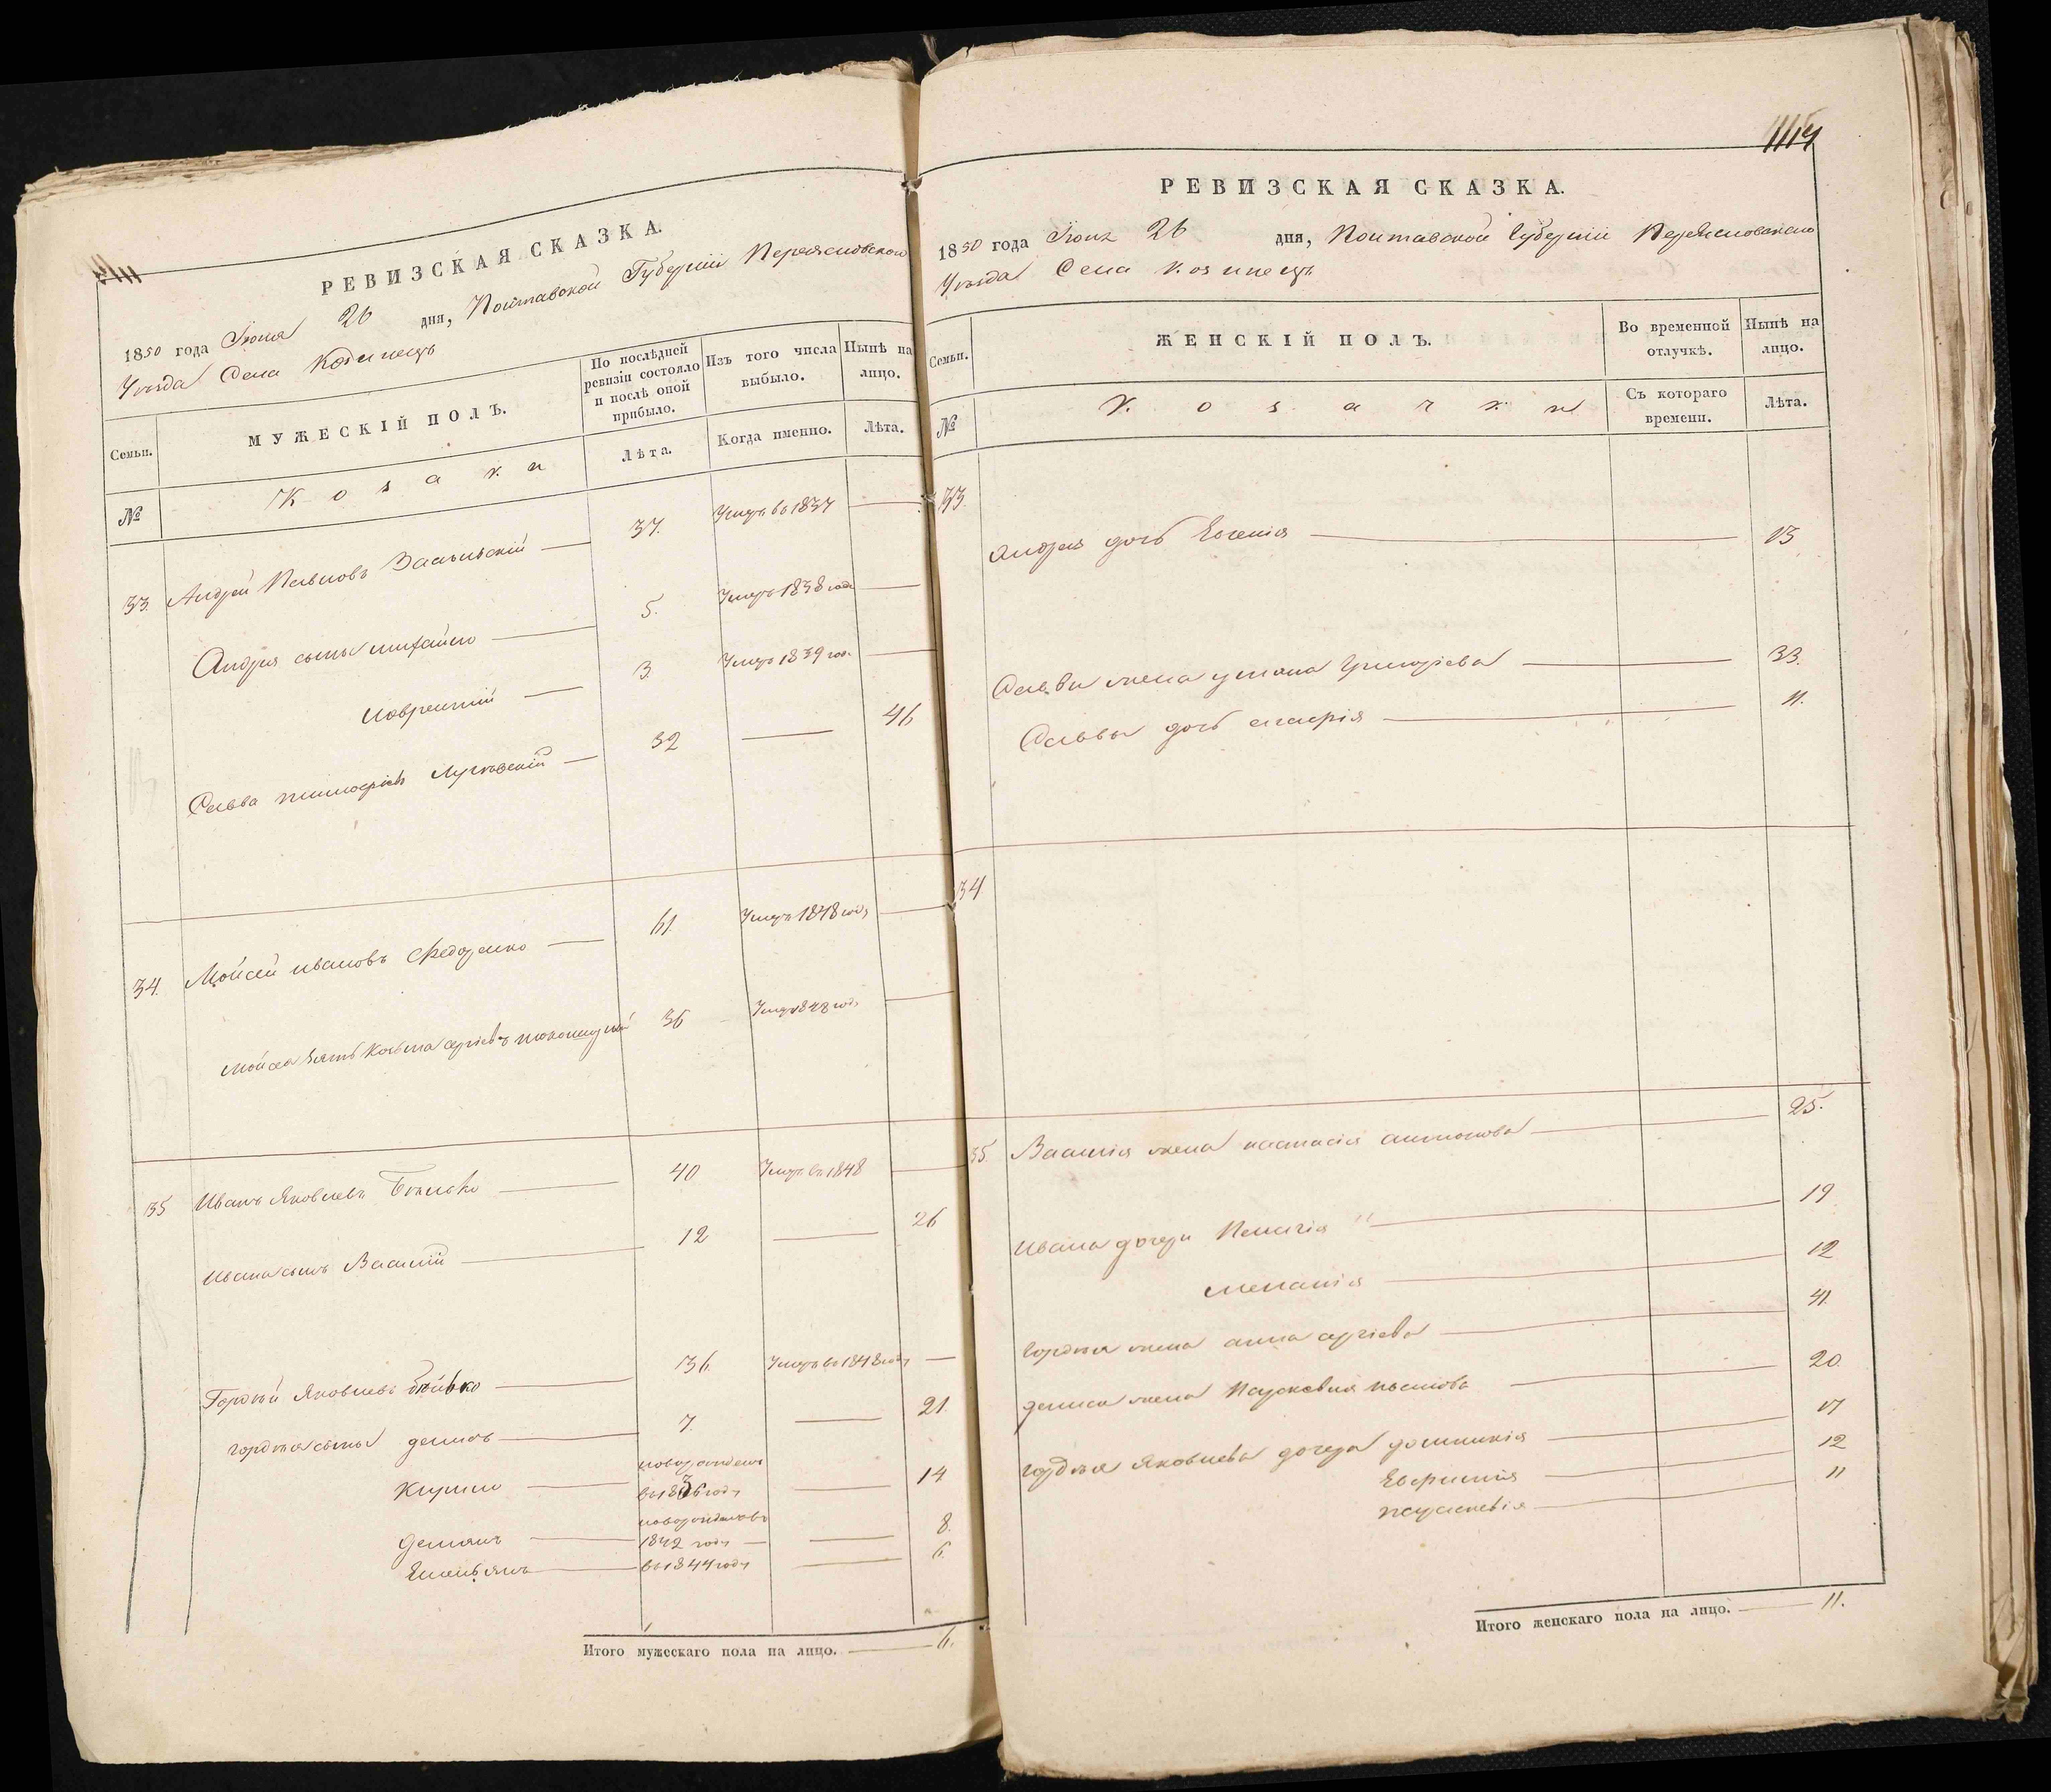 РЕВИЗСКАЯ СКАЗКА.
1850 года Іюня 26 дня, Полтавской Губерніи Переясловского
Уѣзда Села Козинецъ
Семьи.
МУЖЕСКІЙ ПОЛЪ.
По послѣдней ревизіи состояло и послѣ оной прибыло.
Изъ того числа выбыло.
Нынѣ на лицо.
№
Козаки
Лѣта.
Когда именно.
Лѣта.
33. Андрей Павловъ — 37. Умеръ въ 1837 —
Андрея сыны Михайло — 5. Умеръ 1838 года —
Лаврентій — 3. Умеръ 1839 года —
Савва Тимофѣевъ — 32 — 46
34. Мойсей Ивановъ Федоренко — 61. Умеръ 1848 года —
Мойсея зять Козьма Сергіевъ 36 — Умеръ 1848 года —
35 Иванъ Яковлевъ Бойко — 40 Умеръ въ 1848 —
Ивана сынъ Василій — 12 — 26
Гордѣй Яковлевъ Бойко — 36. Умеръ въ 1848 году —
Гордѣя сыны Денисъ — 7. — 21.
Кирило — новорожденъ въ 1836 году — 14
Демянъ — новорожденъ въ 1842 году — 8.
Емельянъ — въ 1844 году — 6.
Итого мужескаго пола на лицо. — 6.
1114
РЕВИЗСКАЯ СКАЗКА.
1850 года Іюня 26 дня, Полтавской Губерніи Переясловского
Уѣзда Села Козинецъ
Семьи.
ЖЕНСКІЙ ПОЛЪ.
Во временной отлучкѣ.
Нынѣ на лицо.
№
Козачки
Съ котораго времени.
Лѣта.
33.
Андрея дочь Евгенія — 13
Саввы жена Уліяна Григоріева — 33.
Саввы дочь Гликерія — 11.
34
35. Василія жена Настасія Антонова — 25.
Ивана дочери Пелагія — 19.
Меланія — 12
Гордѣя жена Анна Сергіева — 41.
Дениса жена Параскевія — 20.
Гордѣя Яковлева дочери Домникія — 17
Евфимія — 12
Параскевія — 11
Итого женскаго пола на лицо. — 11.